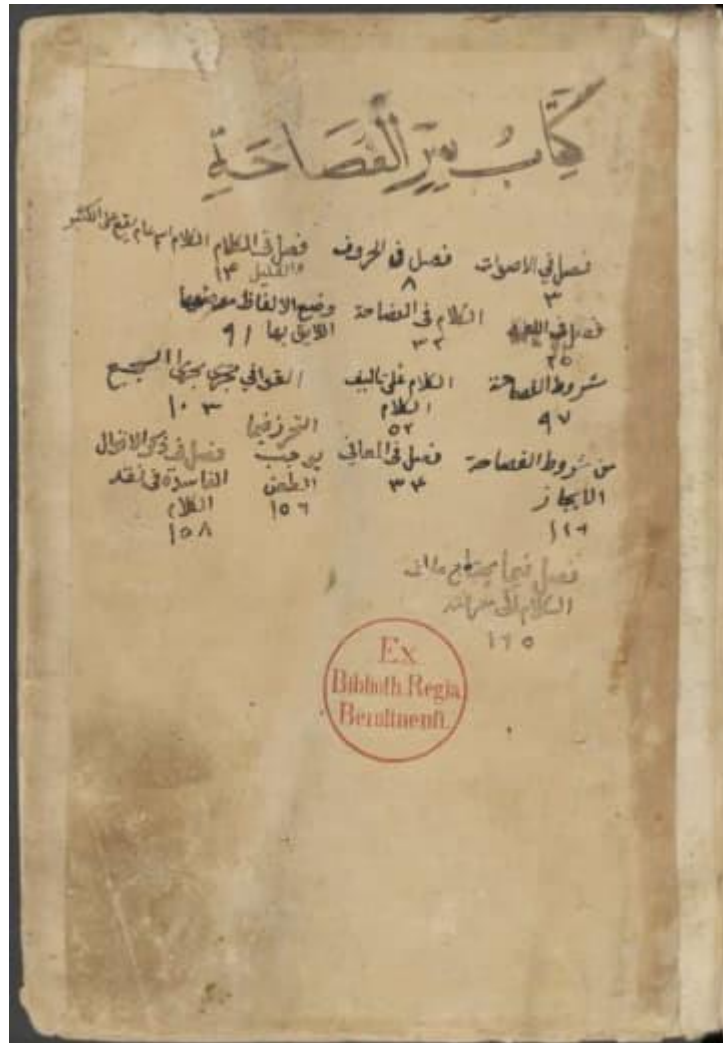 كِتَابُ سِرِّ الْفَصَاحَةِ
فصل في الاصوات
٣
فصل في الحروف
٨
فصل في الكلام الكلام اسم عام يقع على الكثير
والقليل ١٤
فصل في اللغة
٢٥
الكلام في الفصاحة
٣٢
وضع الالفاظ موضعها
اللايق بها ٩١
شروط الفصاحة
٩٧
الكلام على تاليف
الكلام
٥٢
القوافي تجري مجرى السجع
١٠٣
من شروط الفصاحة
الايجاز
فصل في المعاني
التحرز فيما
يوجب
الطعن
١٥٦
فصل في ذكر الاقوال
الفاسدة في نقد
الكلام
١٥٨
فصل فيما يحتاج مؤلف
الكلام الى معرفته
١٦٥
Ex
Biblioth. Regia
Berolinenſi.